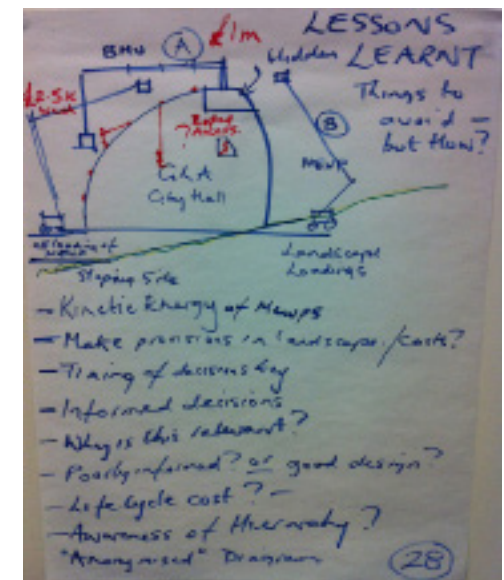 LESSONS
LEARNT
Things to
avoid -
but How?
BMU
A
£1m
Hidden
£2.5K
B
MEWP
?
Rope
Access
GLA
City Hall
Sloping Site
Landscape
Loadings
- Kinetic Energy of Mewps
- Make provisions in landscape./Costs?
- Timing of decisions key
- Informed decisions
- Why is this relevant?
- Poorly informed? or good design?
- Life Cycle cost? -
- Awareness of Hierarchy?
"Anonymised" Diagram
28